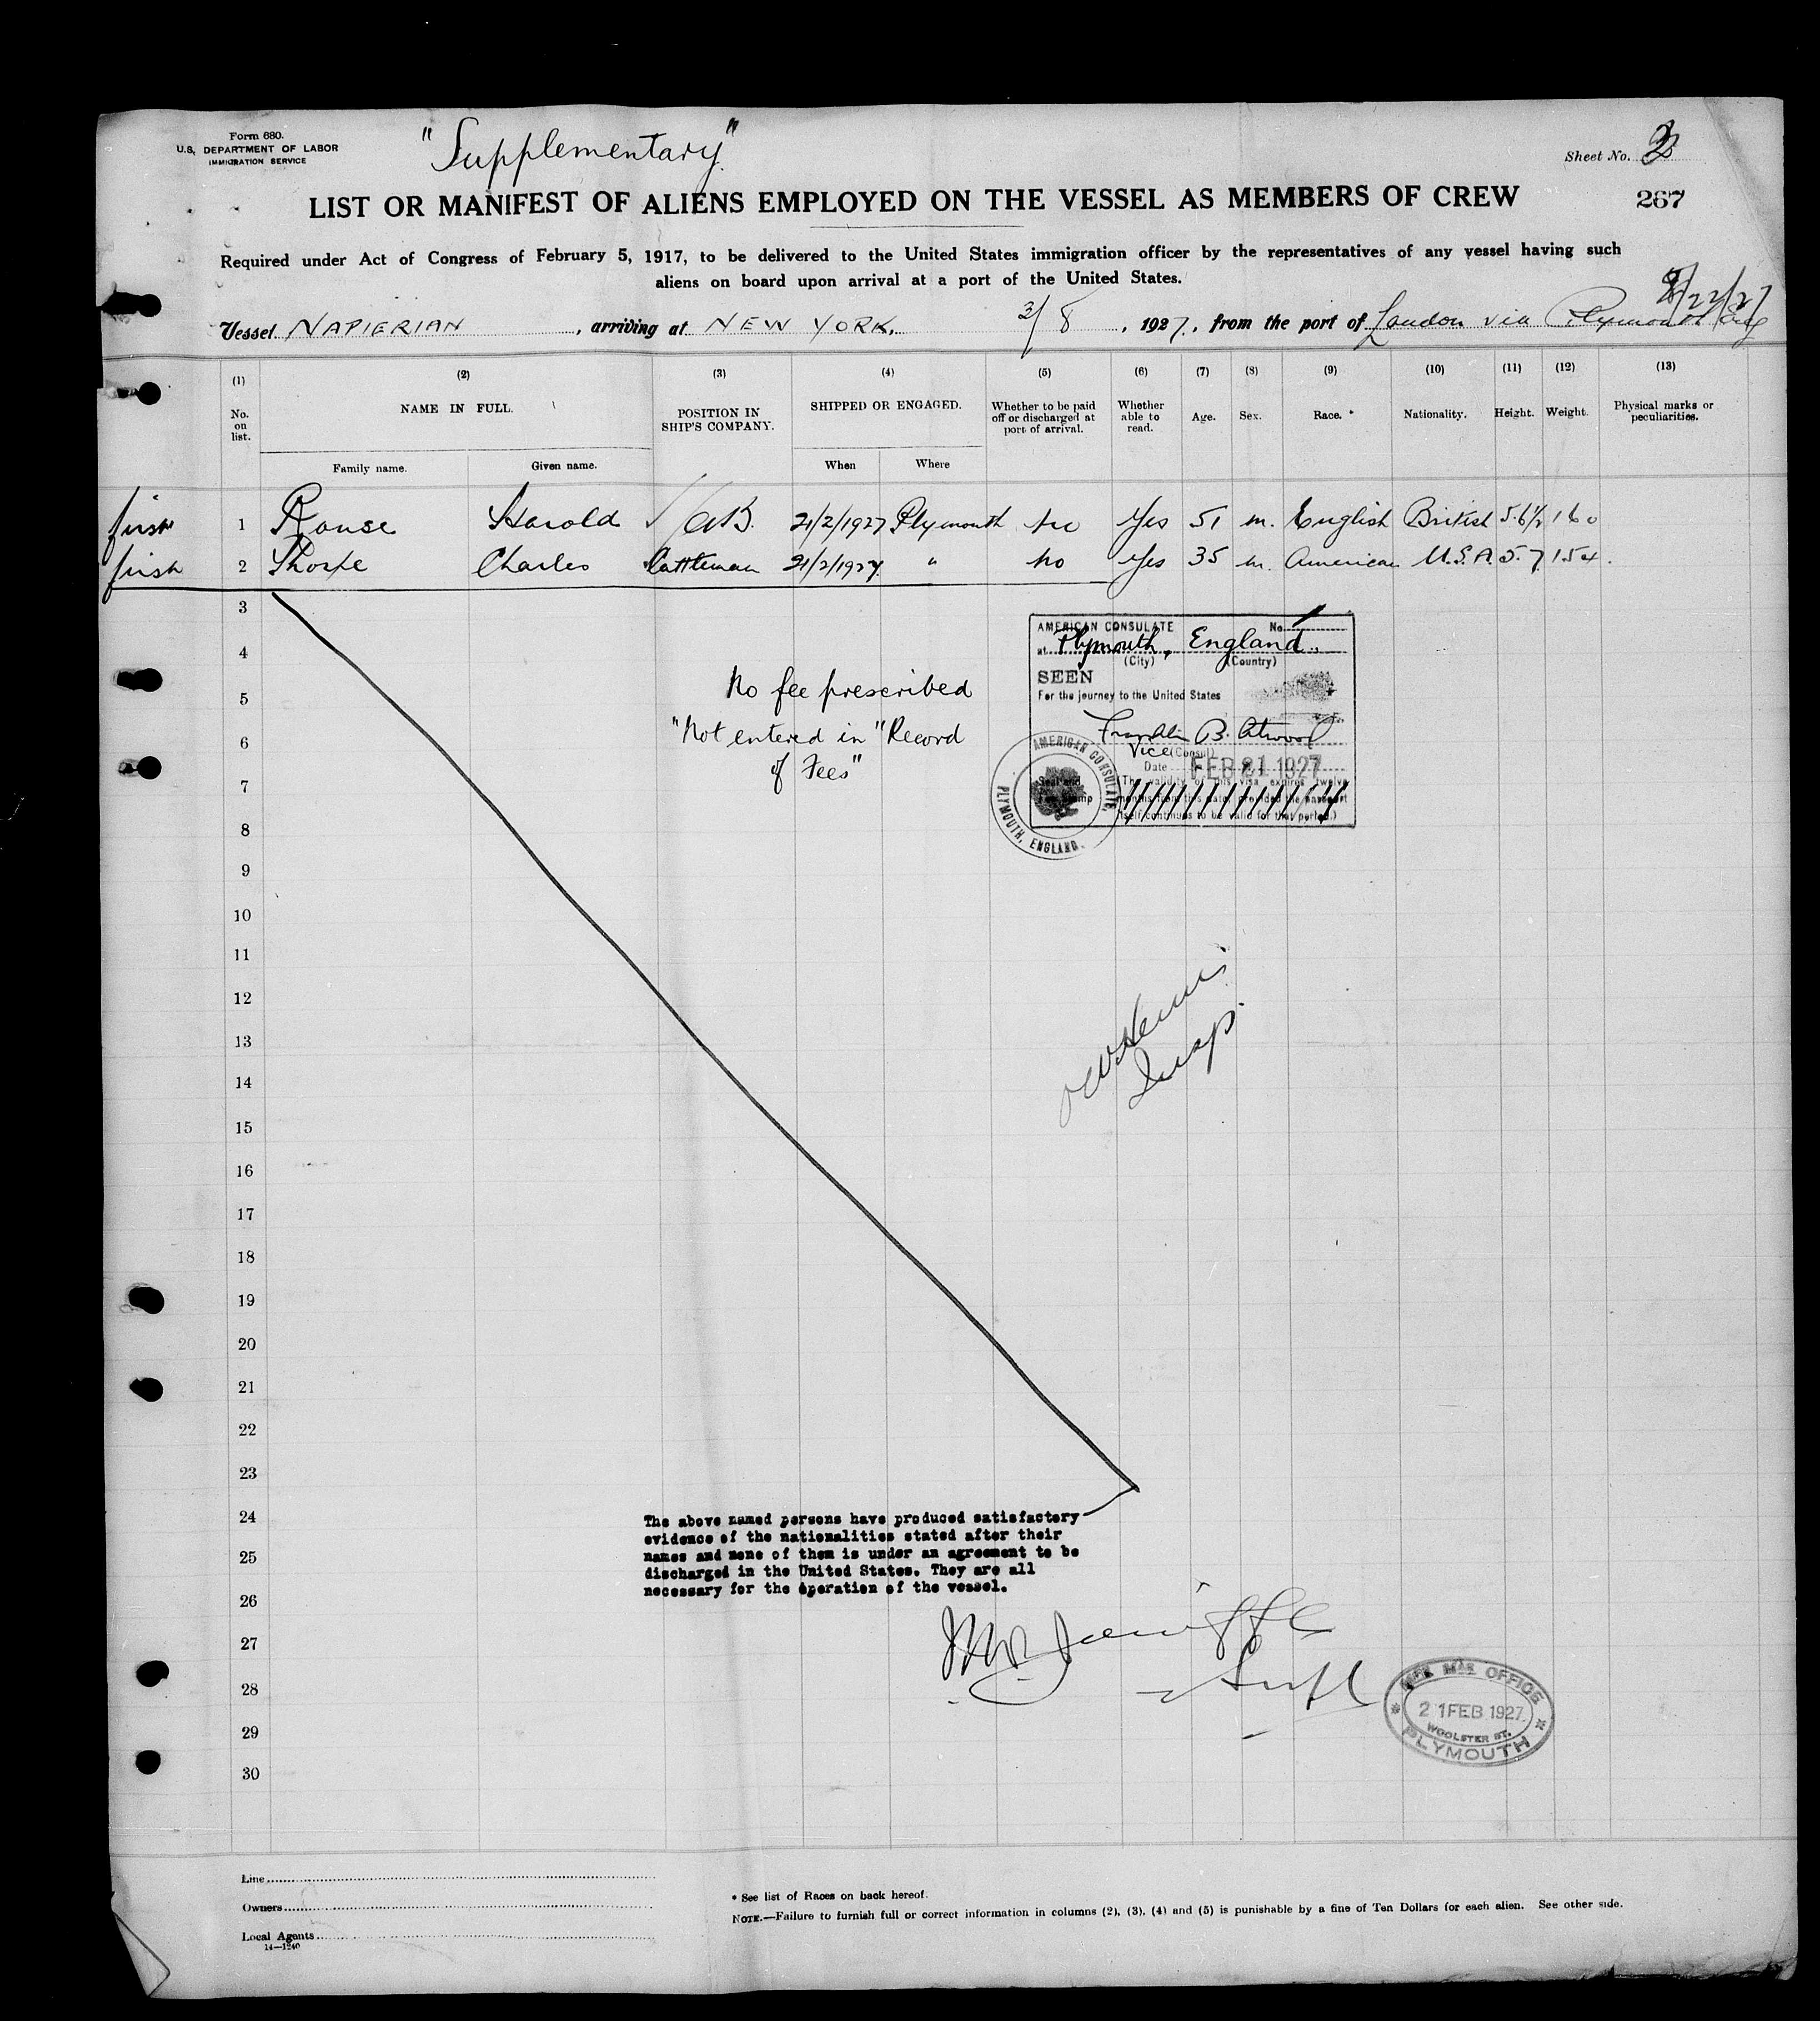 Form 680.
U.S. DEPARTMENT OF LABOR
IMMIGRATION SERVICE
"Supplementary"
Sheet No.
LIST OR MANIFEST OF ALIENS EMPLOYED ON THE VESSEL AS MEMBERS OF CREW
267
Required under Act of Congress of February 5, 1917, to be delivered to the United States immigration officer by the representatives of any vessel having such
aliens on board upon arrival at a port of the United States.
2/22/27
Vessel NAPIERIAN, arriving at NEW YORK, 3/8, 1927, from the port of London via Plymouth Eng
(1) (2) (3) (4) (5) (6) (7) (8) (9) (10) (11) (12) (13)
No. on list. NAME IN FULL. POSITION IN SHIP'S COMPANY. SHIPPED OR ENGAGED. Whether to be paid off or discharged at port of arrival. Whether able to read. Age. Sex. Race.* Nationality. Height. Weight. Physical marks or peculiarities.
Family name. Given name. When Where
first 1 Rouse Harold A.B. 21/2/1927 Plymouth No Yes 51 m. English British 5.6½ 160
first 2 Thorpe Charles Cattleman 21/2/1927 " No Yes 35 m. American U.S.A. 5.7 154.
3
4
5
6
7
8
9
10
11
12
13
14
15
16
17
18
19
20
21
22
23
24
25
26
27
28
29
30
No fee prescribed
"Not entered in "Record
of Fees"
AMERICAN CONSULATE No. 1
at Plymouth, England.
(City) (Country)
SEEN
For the journey to the United States
Franklin B. Atwood
Vice (Consul)
Date FEB 21 1927
Seal and
Fee Stamp
(The validity of this visa expires twelve
months from this date, provided the passport
itself continues to be valid for that period.)
AMERICAN CONSULATE,
PLYMOUTH, ENGLAND.
Insp.
The above named persons have produced satisfactory
evidence of the nationalities stated after their
names and none of them is under an agreement to be
discharged in the United States. They are all
necessary for the operation of the vessel.
Supt
MER. MAR. OFFICE
21 FEB 1927
WOOLSTER ST.
PLYMOUTH
Line
Owners
Local Agents
14—1240
* See list of Races on back hereof.
NOTE.—Failure to furnish full or correct information in columns (2), (3), (4) and (5) is punishable by a fine of Ten Dollars for each alien. See other side.